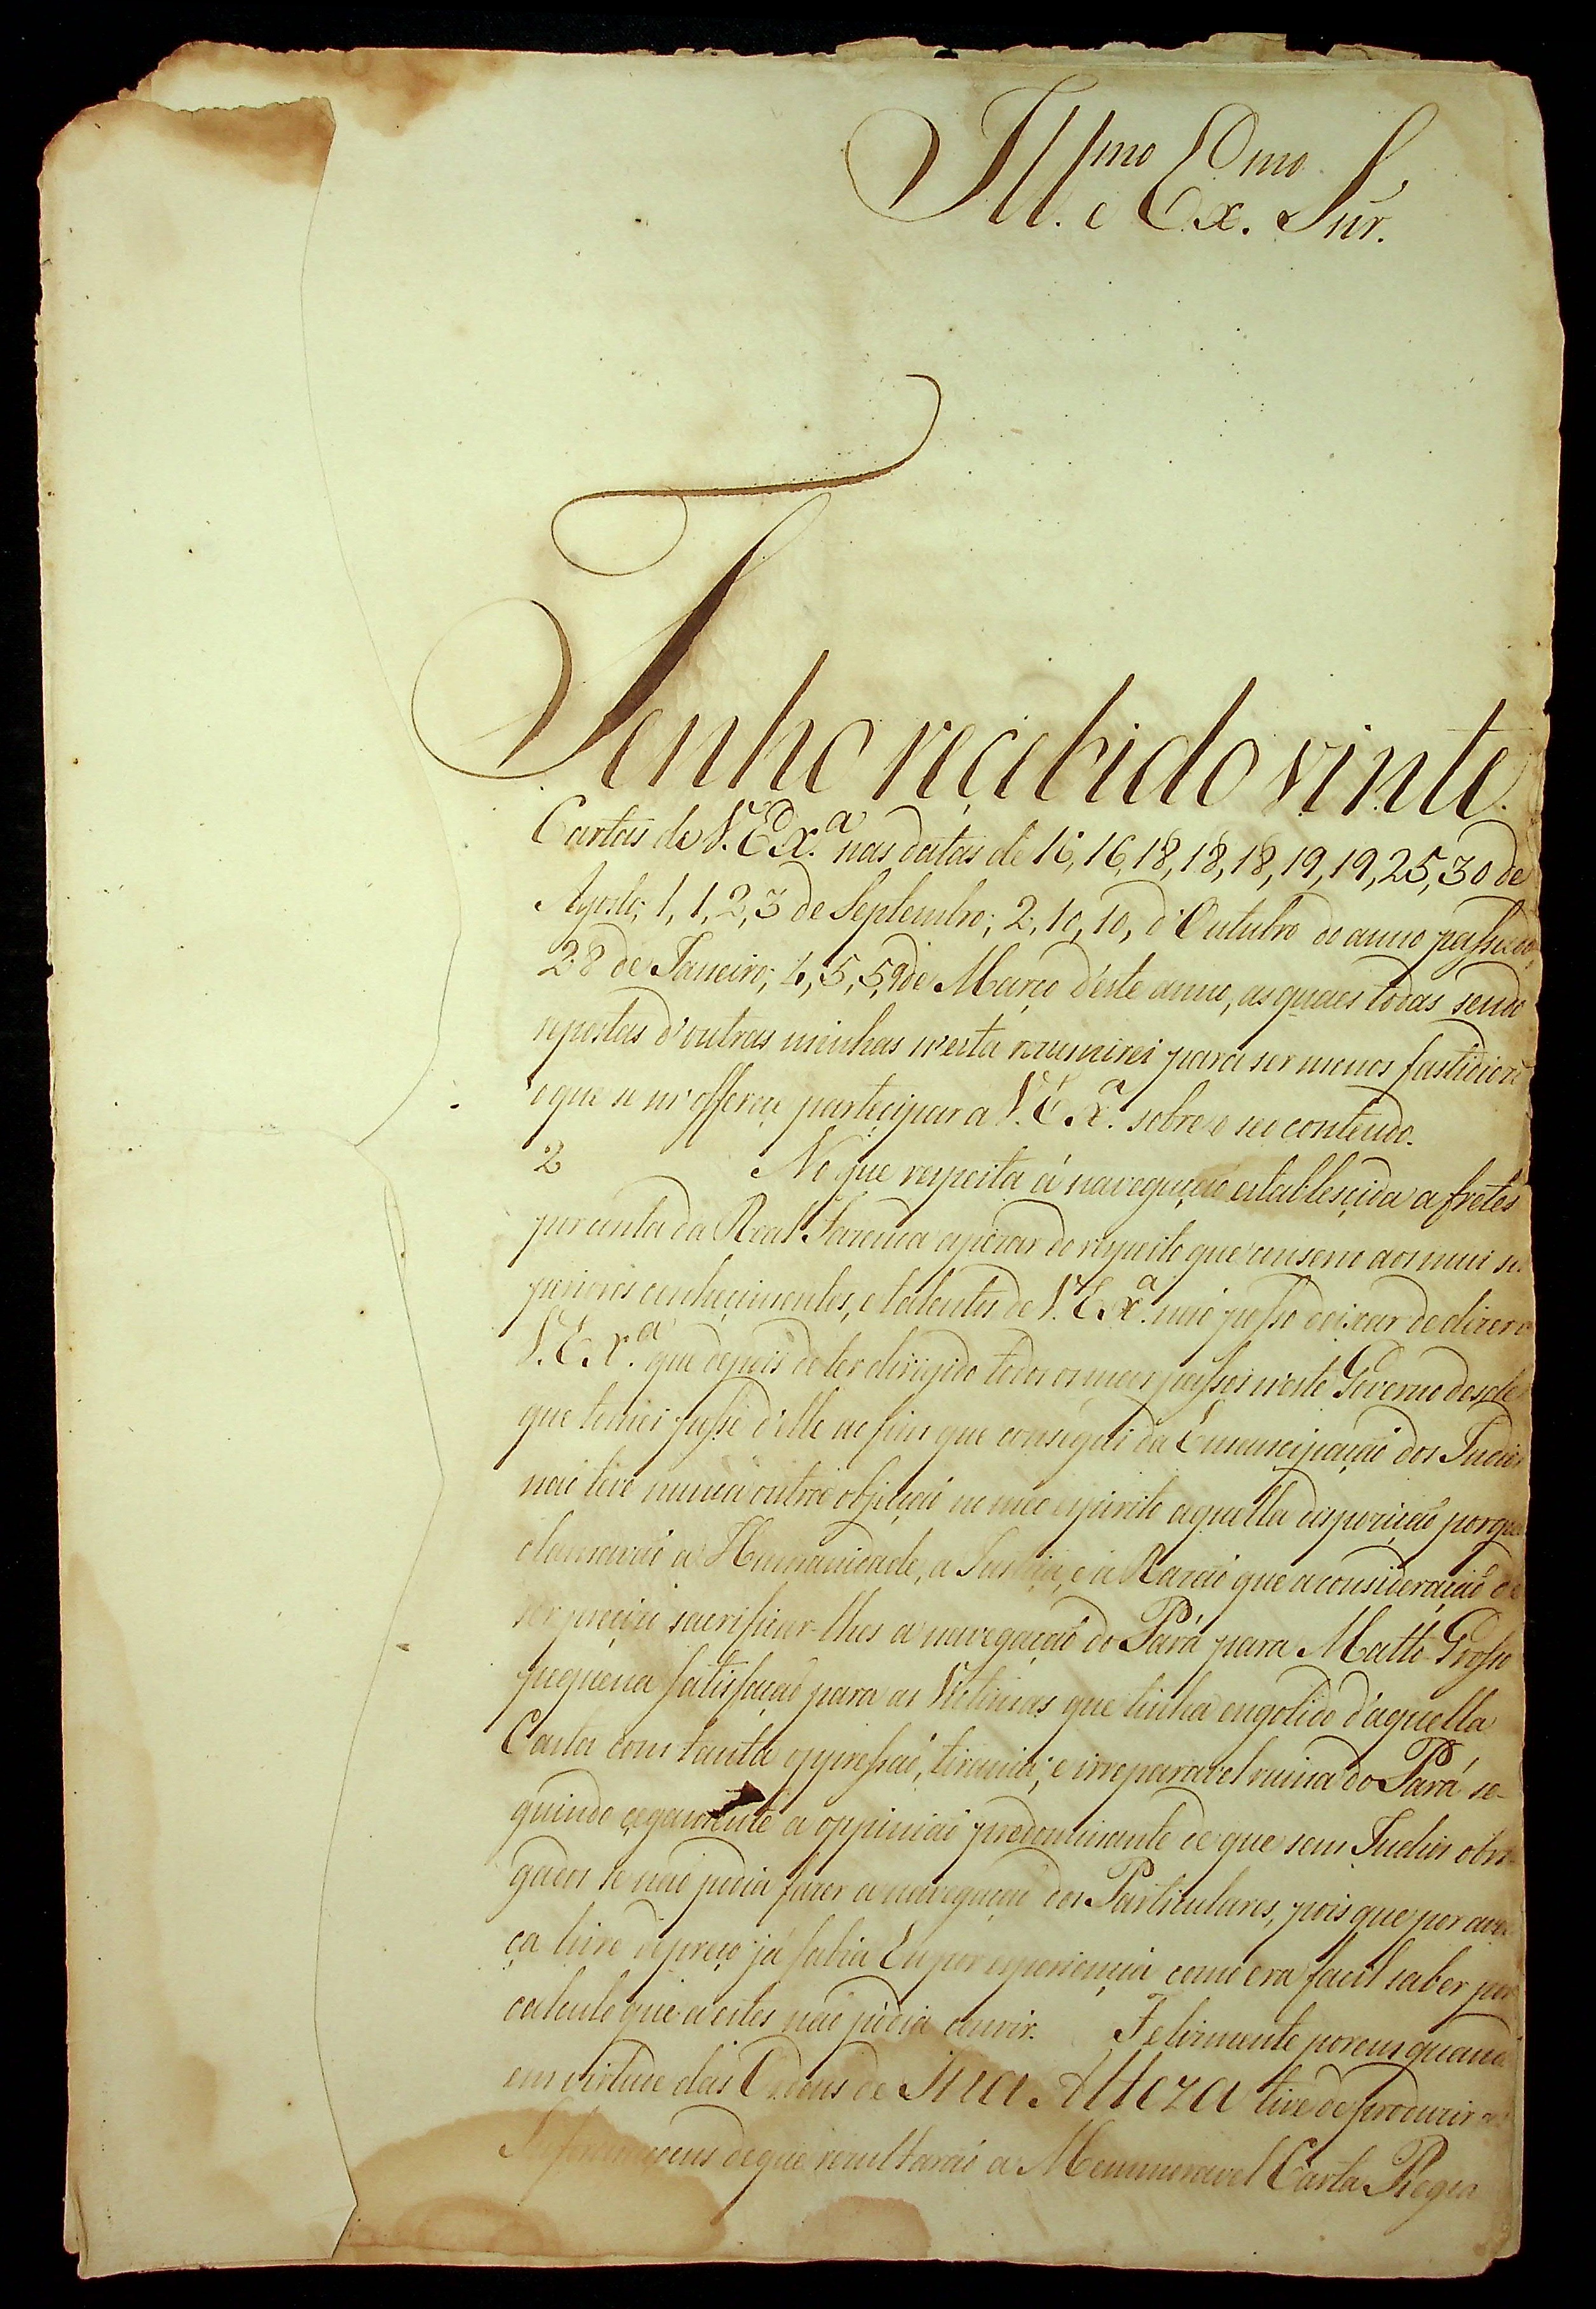 Ill.mo e Ex.mo Snr.
Tenho reçebido vinte
Cartas de V. Ex.a nas datas de 16, 16, 18, 18, 18, 19, 19, 25, 30 de
Agosto; 1, 1, 2, 3 de Septembro; 2, 10, 10, d'Outubro do anno passado,
28 de Janeiro; 4, 5, 5, 9 de Março d'este anno, as quaes todas sendo
repostas d'outras minhas n'esta rezumirei para ser menos fastidiozo
o que se m'offereçe parteçipar a V. Ex.a sobre o seo conteudo.
2 No que respeita á navegação establesçida a fretes
por conta da Real Fazenda apezar do respeito que conservo aos mui su
periores conheçimentos, e talentos de V. Ex.a não posso deixar de dizer a
V. Ex.a que depois de ter dirigido todos os meos passos n'este Governo desde
que tomei posse d'elle ao fim que consegui da Emancipação dos Indios
não tive nunca outra objeção no meo espirito aquella dispozição porque
clamavão a Humanidade, a Justiça, e a Razão que a consideração de
ser preçizo sacrificar-lhes a navegação do Pará para Matto-Grosso
pequena satisfação para as Victimas que tinha engolido d'aquella
Casta com tanta oppressão, tirania, e irreparavel ruina do Pará se-
guindo çegamente a oppinião predominante de que sem Indios obri-
gados se não podia fazer a navegação dos Particulares, pois que por aven
ça livre de preço já sabia Eu por esperiençia como era façil saber por
calculo que a estes não podia convir. Felizmente porem quando
em virtude das Ordens de Sua Alteza tive de produzir as
Informaçoens de que rezultarão a Memmoravel Carta Regia